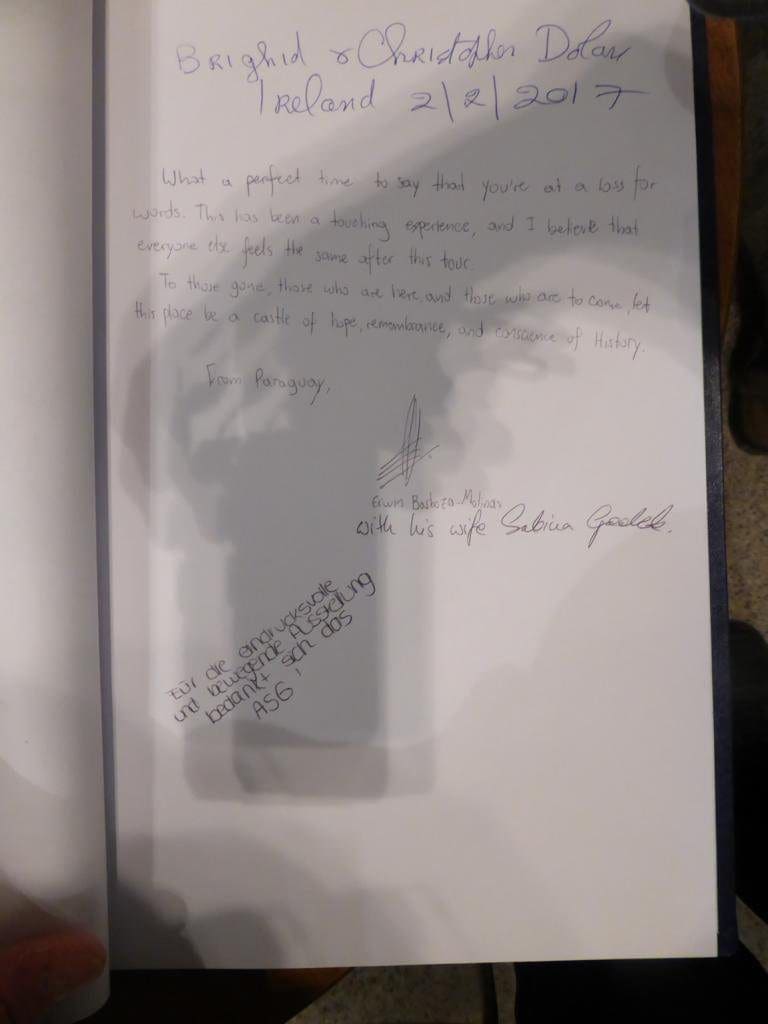 Brighid & Christopher Dolan
Ireland 2/2/2017
What a perfect time to say that you're at a loss for
words. This has been a touching experience, and I believe that
everyone else feels the same after this tour.
To those gone, those who are here, and those who are to come, let
this place be a castle of hope, remembrance, and conscience of History.
From Paraguay,
Erwin Barboza-Molinas
with his wife Sabina
Für die eindrucksvolle
und bewegende Ausstellung
bedankt sich das
ASG!